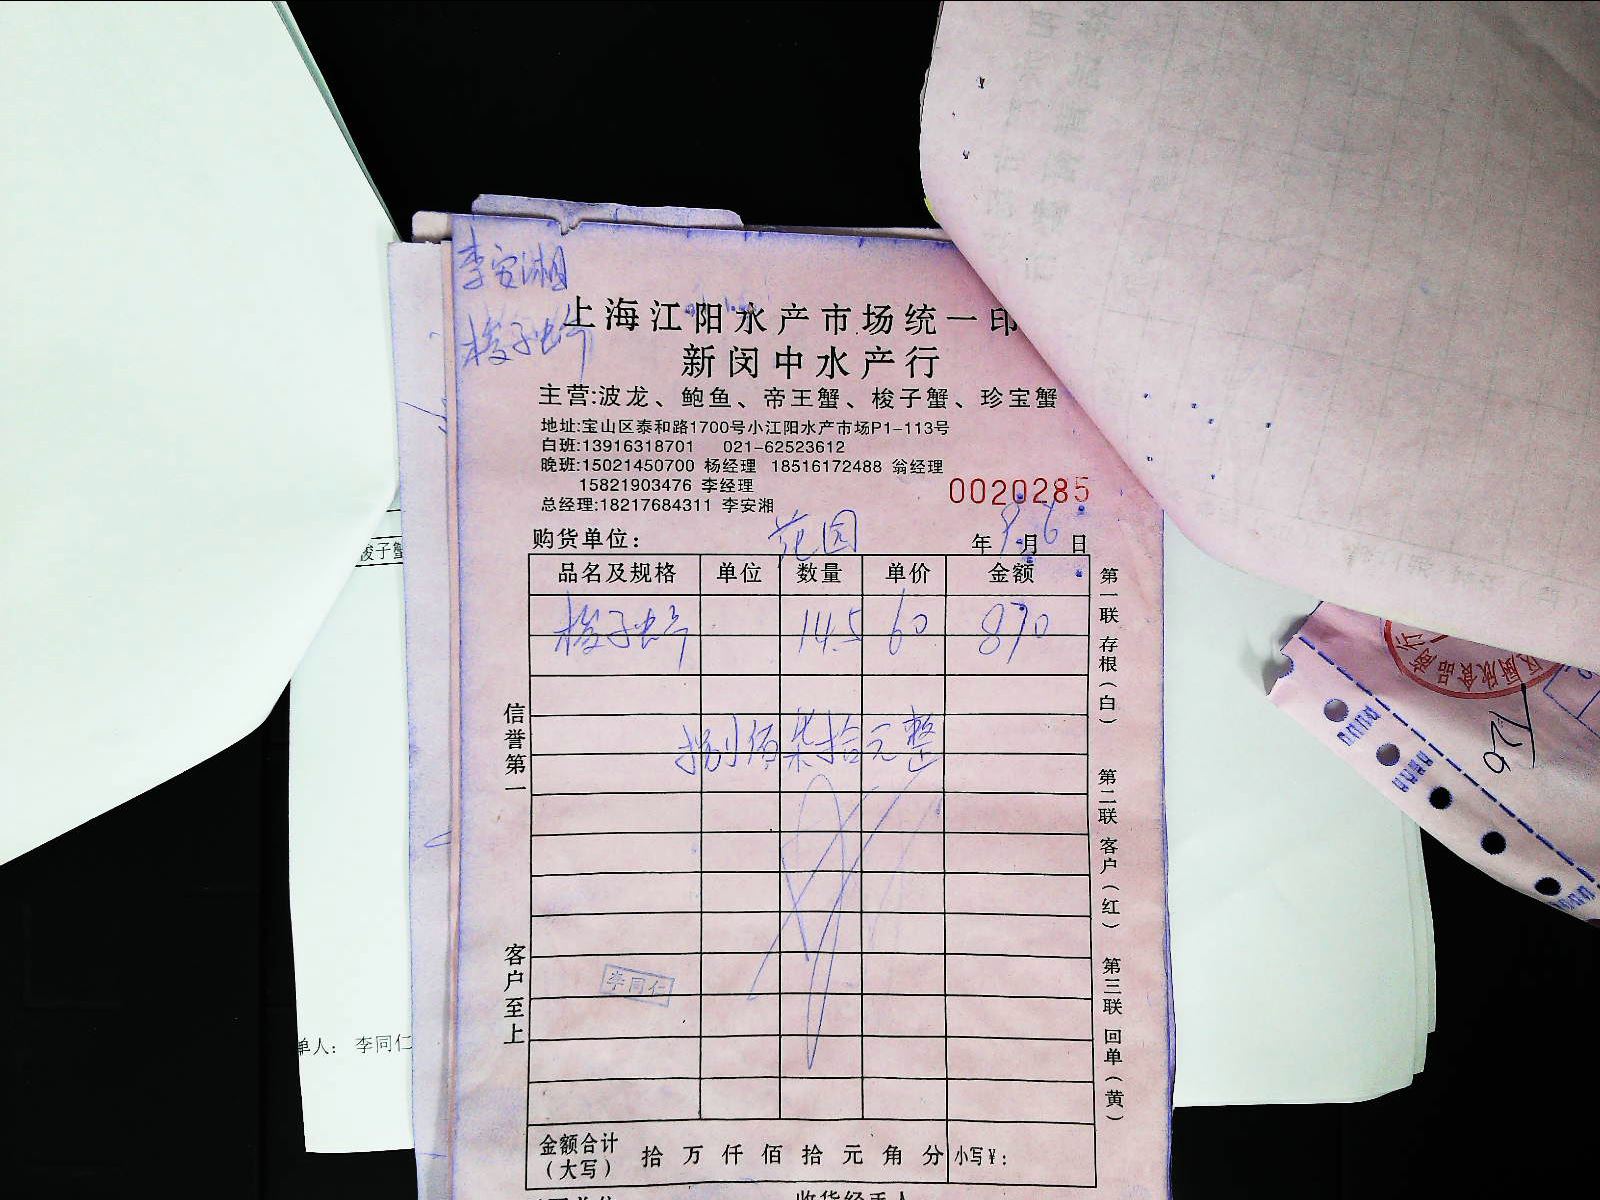 李安湘
梭子蟹
上海江阳水产市场统一印
新闵中水产行
主营:波龙、鲍鱼、帝王蟹、梭子蟹、珍宝蟹
地址:宝山区泰和路1700号小江阳水产市场P1-113号
白班:13916318701 021-62523612
晚班:15021450700 杨经理 18516172488 翁经理
15821903476 李经理
总经理:18217684311 李安湘
0020285
购货单位: 范园 年 9 月 6 日
品名及规格 单位 数量 单价 金额
梭子蟹 14.5 60 870
捌佰柒拾元整
李同仁
金额合计(大写) 拾 万 仟 佰 拾 元 角 分 小写¥:
信誉第一
客户至上
第一联 存根(白)
第二联 客户(红)
第三联 回单(黄)
梭子蟹
单人: 李同仁
726